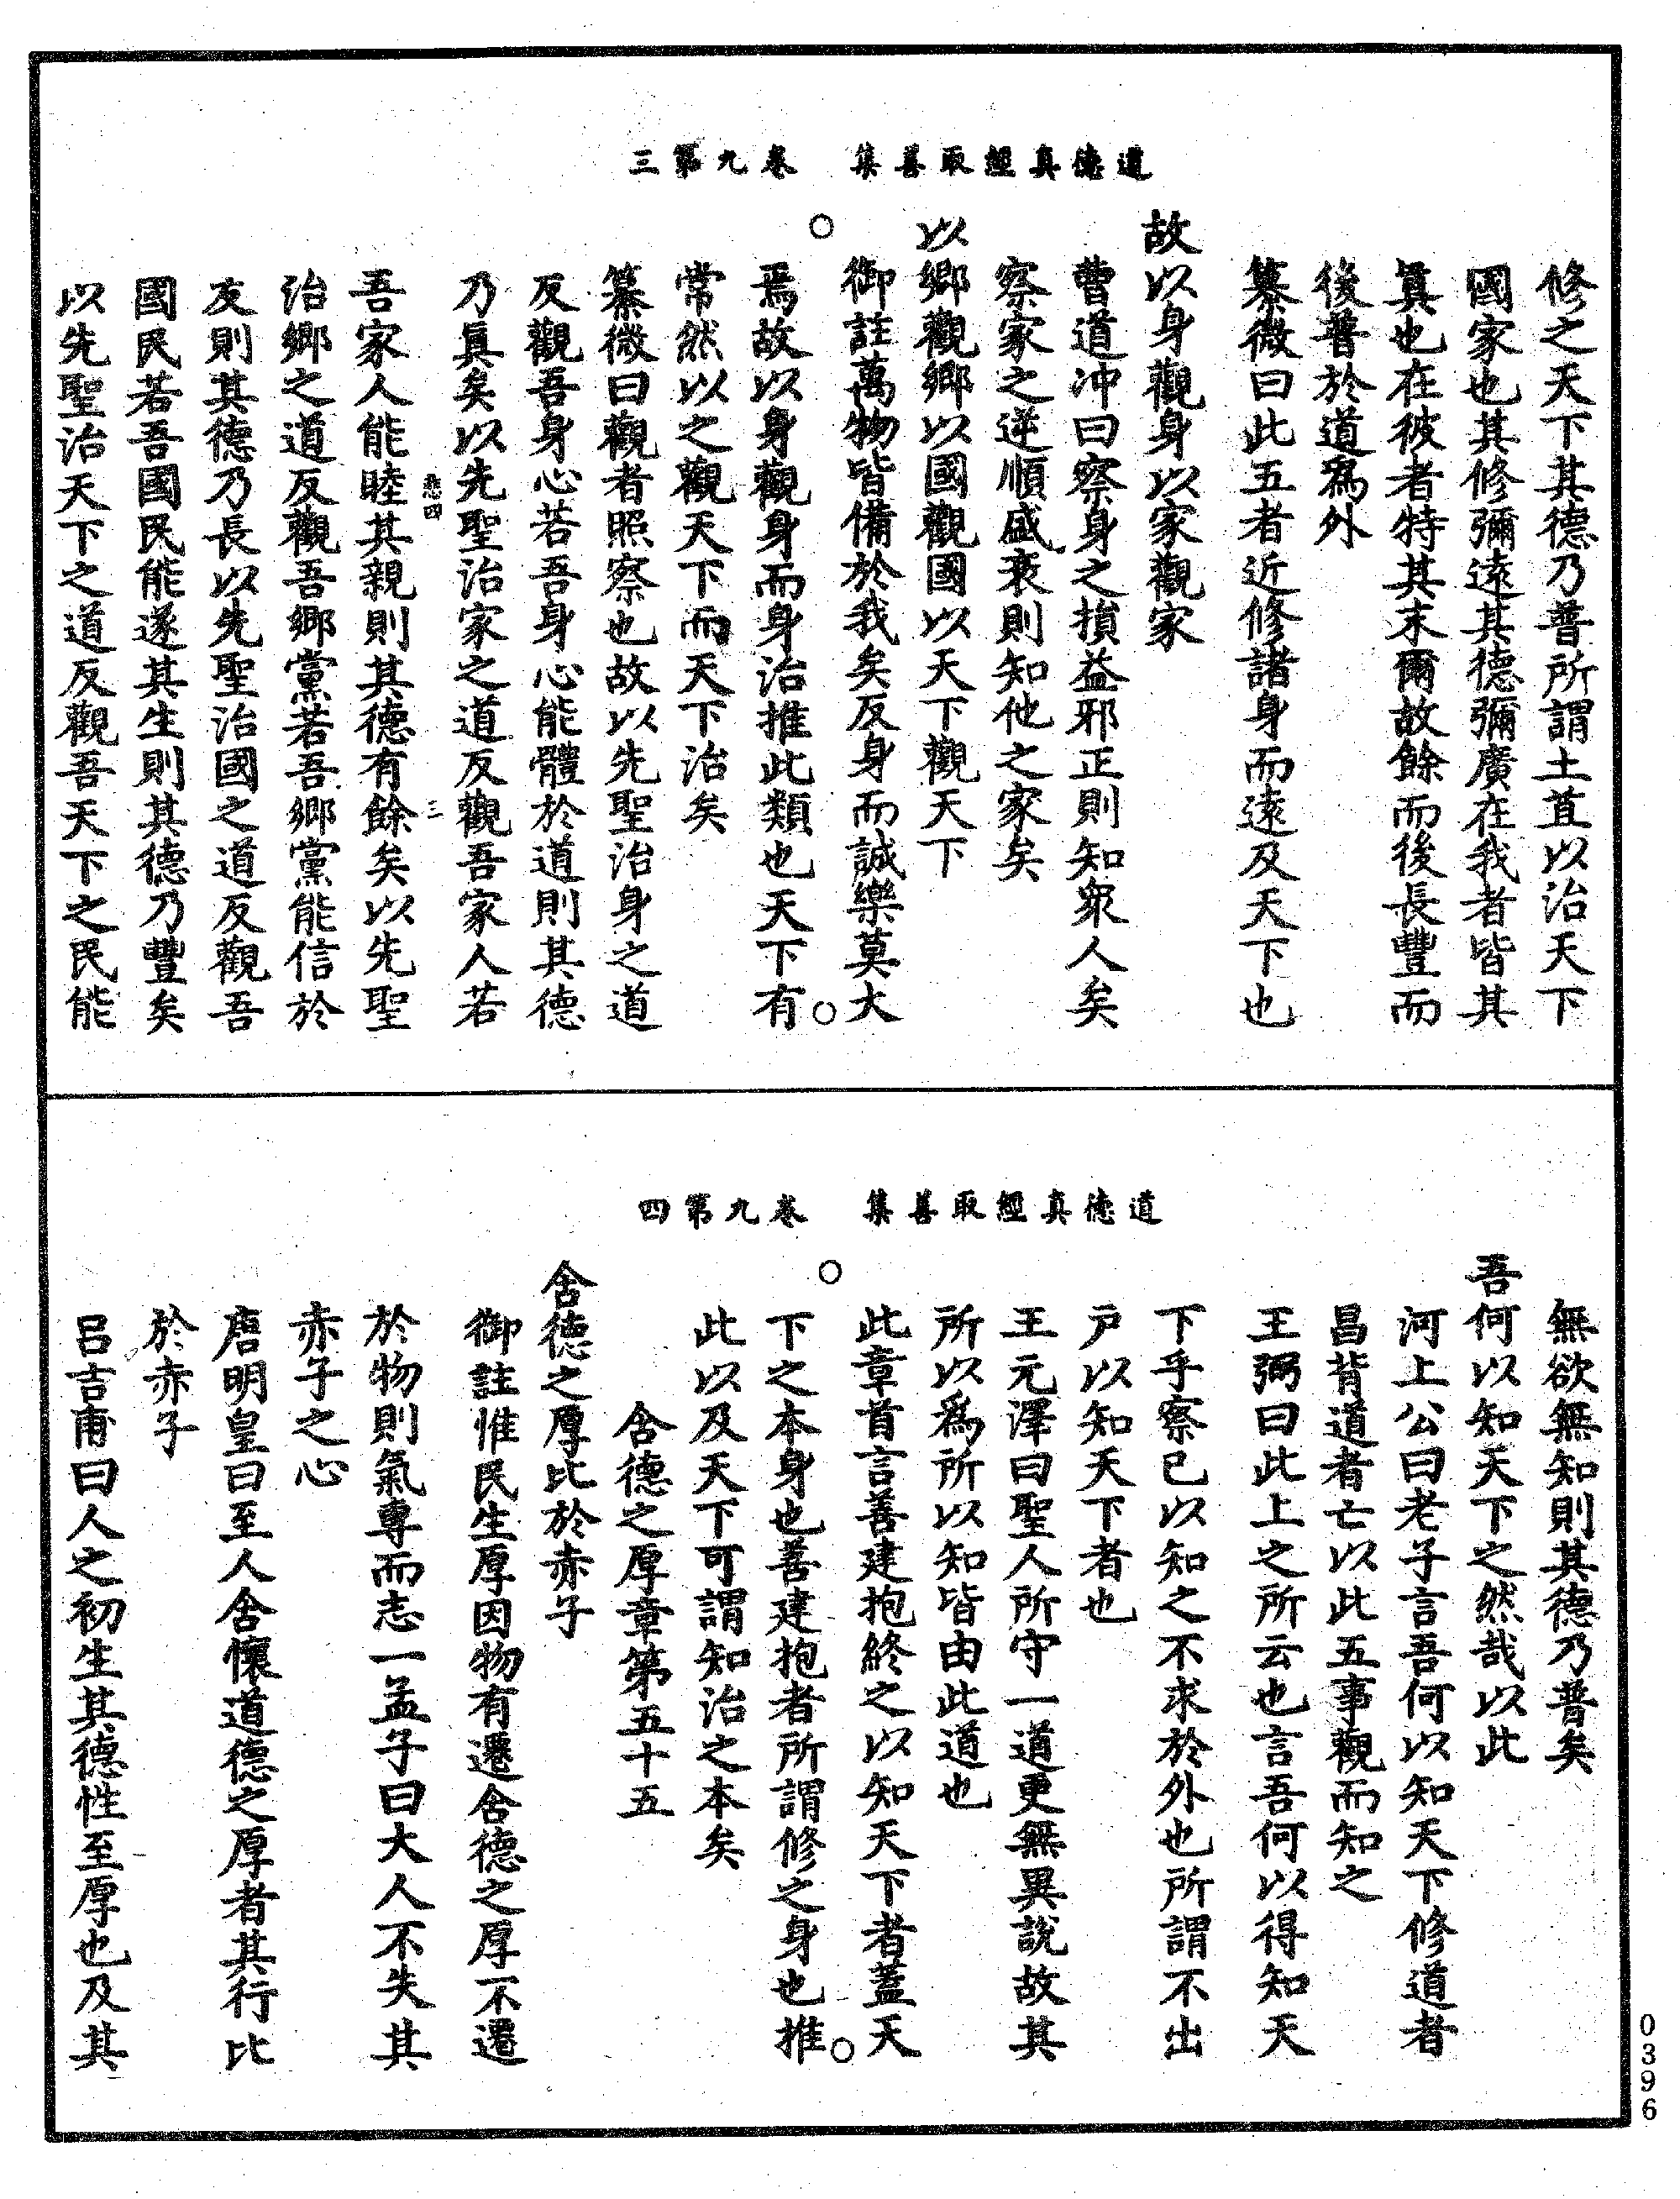 道德真經取善集　卷九第三
修之天下其德乃普所謂土苴以治天下
國家也其修彌遠其德彌廣在我者皆其
眞也在彼者特其末爾故餘而後長豐而
後普於道爲外
纂微曰此五者近修諸身而遠及天下也
故以身觀身以家觀家
曹道沖曰察身之損益邪正則知衆人矣
察家之逆順盛衰則知他之家矣
以鄉觀鄉以國觀國以天下觀天下
御註萬物皆備於我矣反身而誠樂莫大
焉故以身觀身而身治推此類也天下有
常然以之觀天下而天下治矣
纂微曰觀者照察也故以先聖治身之道
反觀吾身心若吾身心能體於道則其德
乃眞矣以先聖治家之道反觀吾家人若
三
吾家人能睦其親則其德有餘矣以先聖
治鄉之道反觀吾鄉黨若吾鄉黨能信於
友則其德乃長以先聖治國之道反觀吾
國民若吾國民能遂其生則其德乃豐矣
以先聖治天下之道反觀吾天下之民能
道德真經取善集　卷九第四
無欲無知則其德乃普矣
吾何以知天下之然哉以此
河上公曰老子言吾何以知天下修道者
昌背道者亡以此五事觀而知之
王弼曰此上之所云也言吾何以得知天
下乎察己以知之不求於外也所謂不出
戶以知天下者也
王元澤曰聖人所守一道更無異說故其
所以爲所以知皆由此道也
此章首言善建抱終之以知天下者蓋天
下之本身也善建抱者所謂修之身也推
此以及天下可謂知治之本矣
含德之厚章第五十五
含德之厚比於赤子
御註惟民生厚因物有遷含德之厚不遷
於物則氣專而志一孟子曰大人不失其
赤子之心
唐明皇曰至人含懷道德之厚者其行比
於赤子
呂吉甫曰人之初生其德性至厚也及其
0396